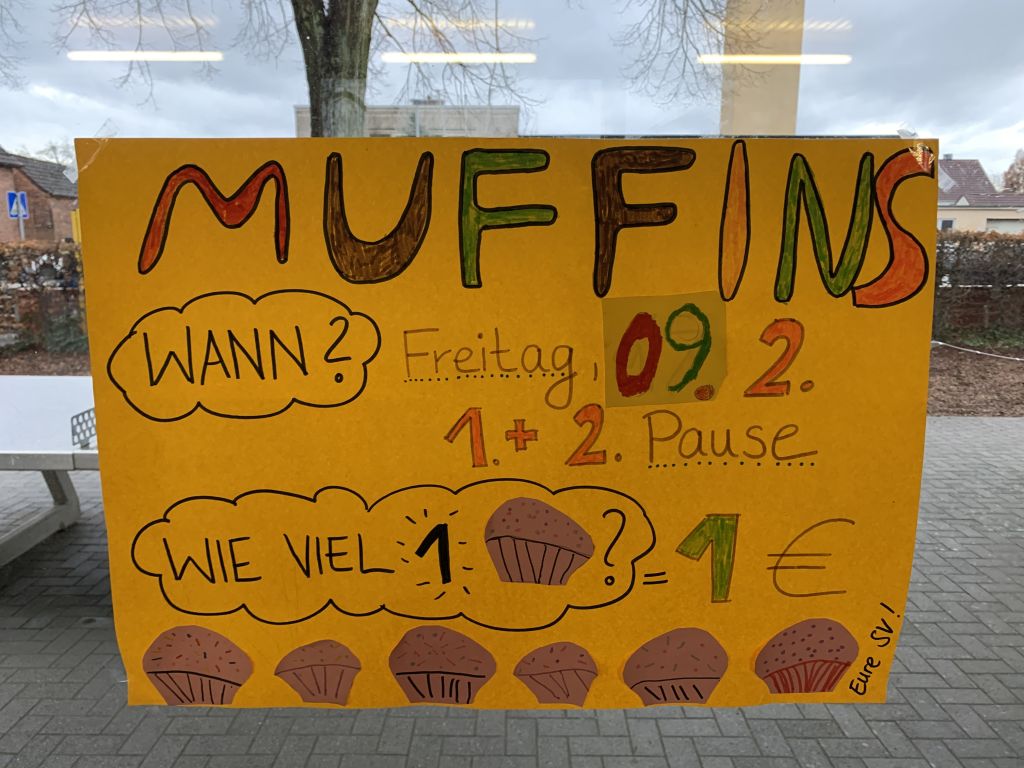 MUFFINS
WANN? Freitag, 09. 2.
1.+ 2. Pause
WIE VIEL 1 ? = 1 €
Eure SV!